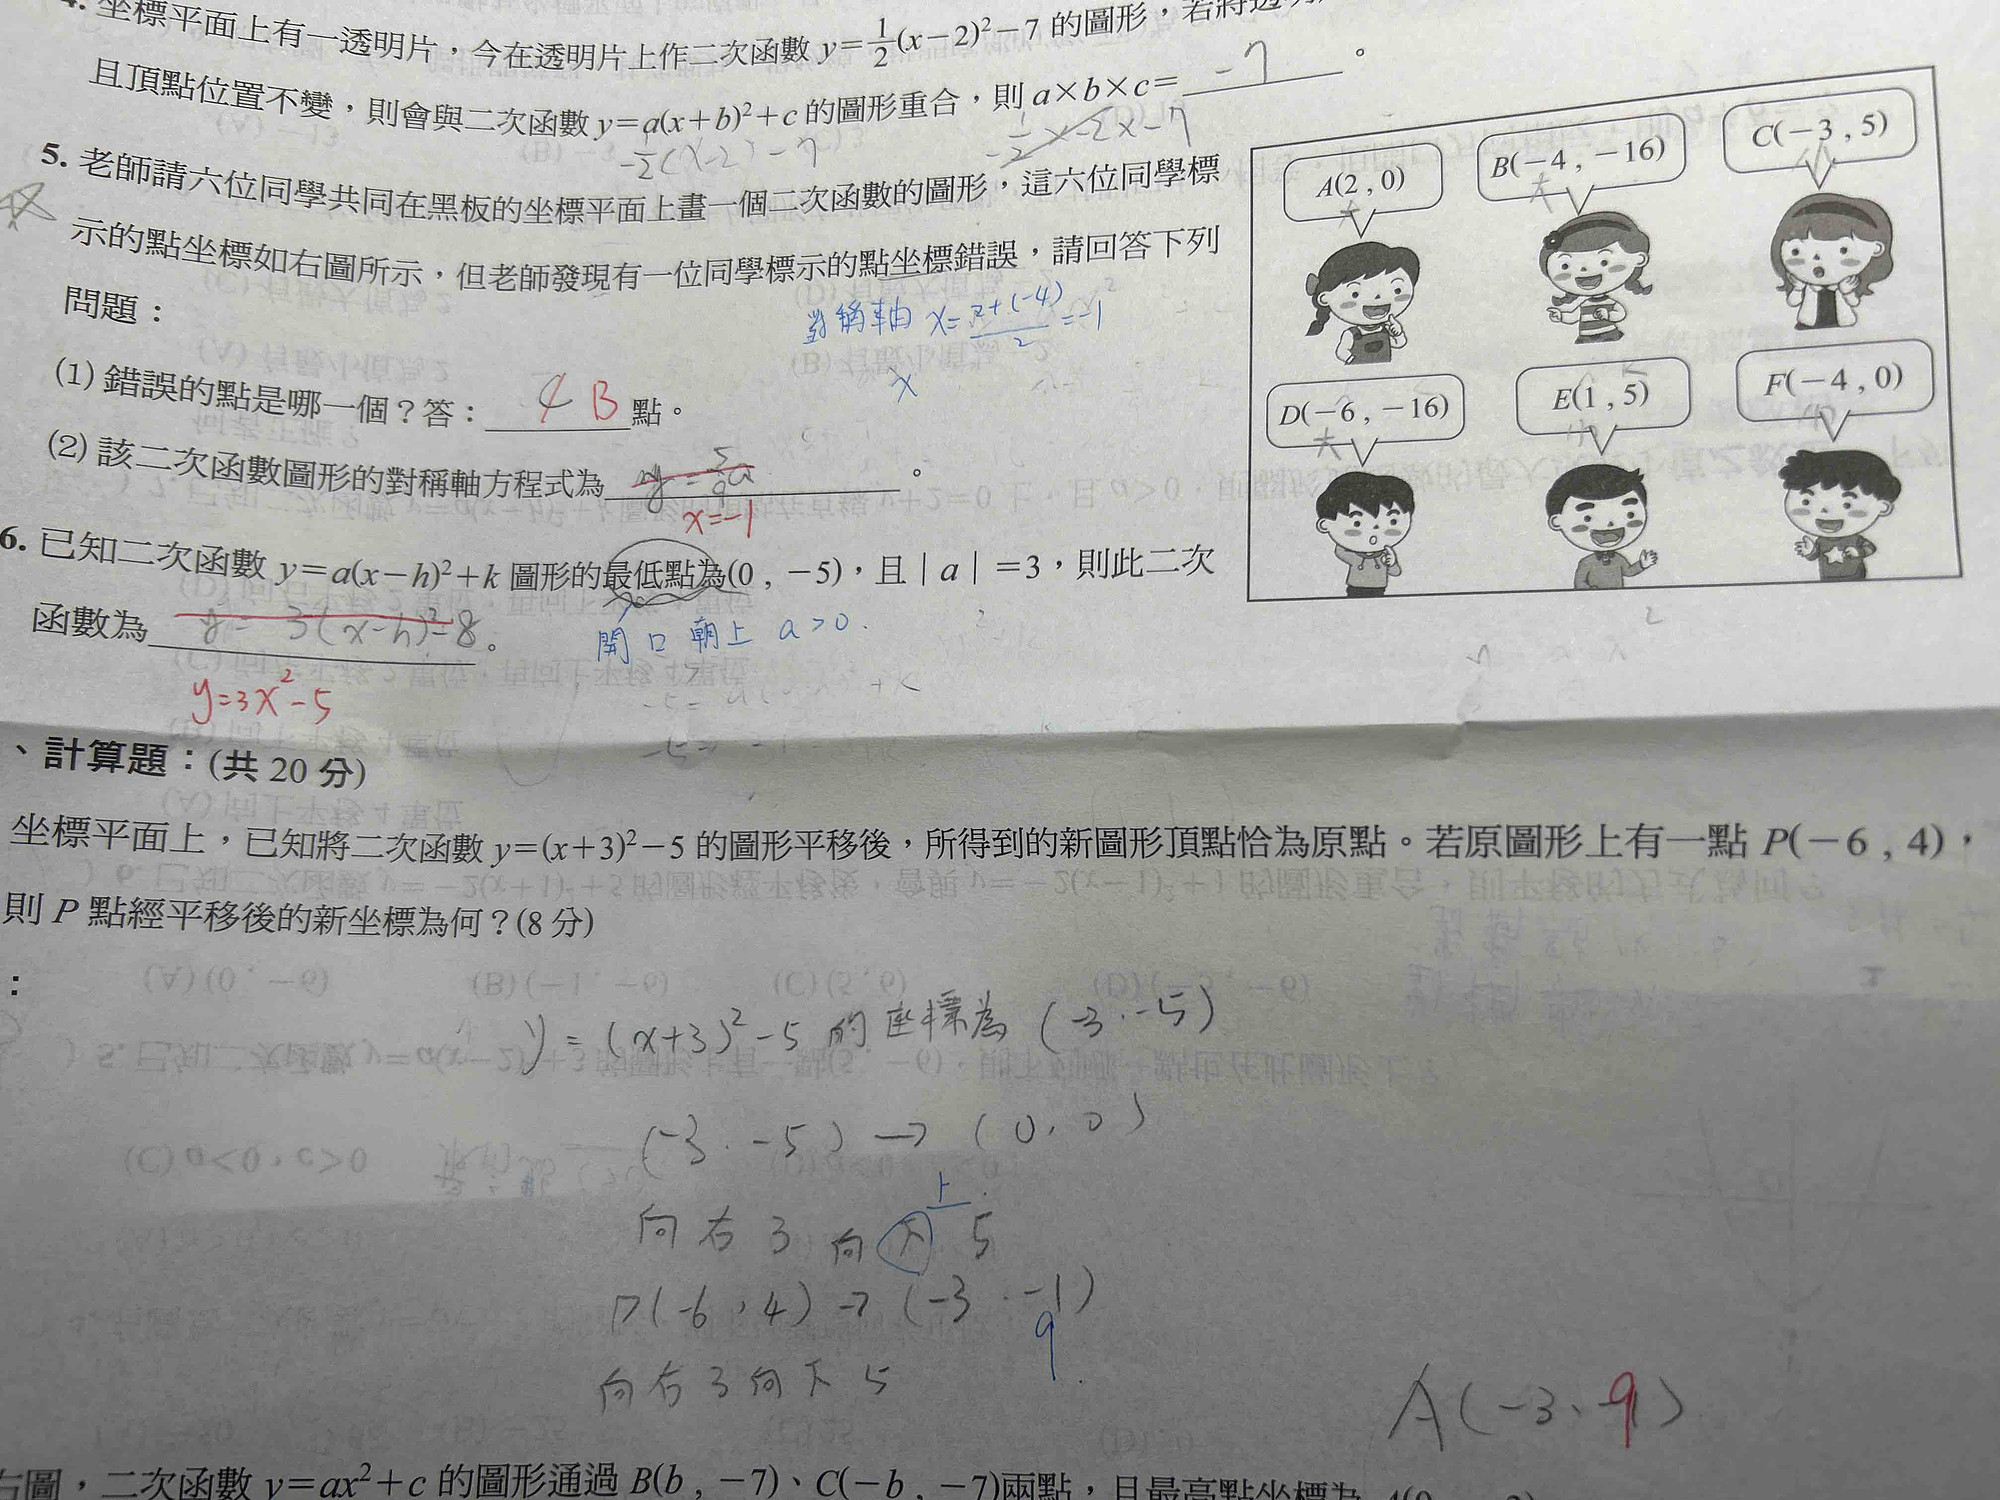 4. 坐標平面上有一透明片，今在透明片上作二次函數 y=1/2(x−2)²−7 的圖形，若將透明
且頂點位置不變，則會與二次函數 y=a(x+b)²+c 的圖形重合，則 a×b×c= −7 。
−1/2(x−2)−7
−1/2×−2×−7
5. 老師請六位同學共同在黑板的坐標平面上畫一個二次函數的圖形，這六位同學標
示的點坐標如右圖所示，但老師發現有一位同學標示的點坐標錯誤，請回答下列
問題：
對稱軸 x=2+(−4)/2=−1
(1) 錯誤的點是哪一個？答： B 點。
(2) 該二次函數圖形的對稱軸方程式為 。
x=−1
A(2 , 0)
B(−4 , −16)
C(−3 , 5)
D(−6 , −16)
E(1 , 5)
F(−4 , 0)
6. 已知二次函數 y=a(x−h)²+k 圖形的最低點為(0 , −5)，且｜a｜=3，則此二次
函數為 y= 3(x−h)²−8 。
開口朝上 a>0.
y=3x²−5
、計算題：(共 20 分)
坐標平面上，已知將二次函數 y=(x+3)²−5 的圖形平移後，所得到的新圖形頂點恰為原點。若原圖形上有一點 P(−6 , 4)，
則 P 點經平移後的新坐標為何？(8 分)
:
y=(x+3)²−5 的座標為 (−3，−5)
(−3，−5) → (0，0)
上
向右 3 向下 5
P(−6，4) → (−3，−1)
9
向右3向下 5
A(−3、9)
右圖，二次函數 y=ax²+c 的圖形通過 B(b , −7)、C(−b , −7)兩點，且最高點坐標為